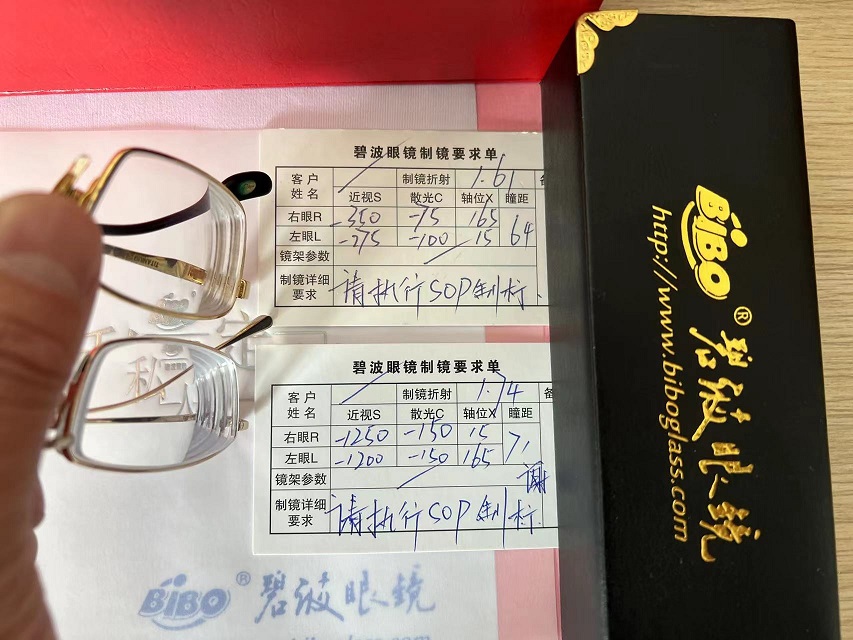 碧波眼镜制镜要求单
客户姓名 制镜折射 1.61
近视S 散光C 轴位X 瞳距
右眼R -350 -75 165 64
左眼L -275 -100 15
镜架参数
制镜详细要求 请执行SOP制标.
碧波眼镜制镜要求单
客户姓名 制镜折射 1.74
近视S 散光C 轴位X 瞳距
右眼R -1250 -150 15 71
左眼L -1200 -150 165
镜架参数 谢
制镜详细要求 请执行SOP制标.
BiBO® 碧波眼镜
BiBO® 碧波眼镜
http://www.biboglass.com